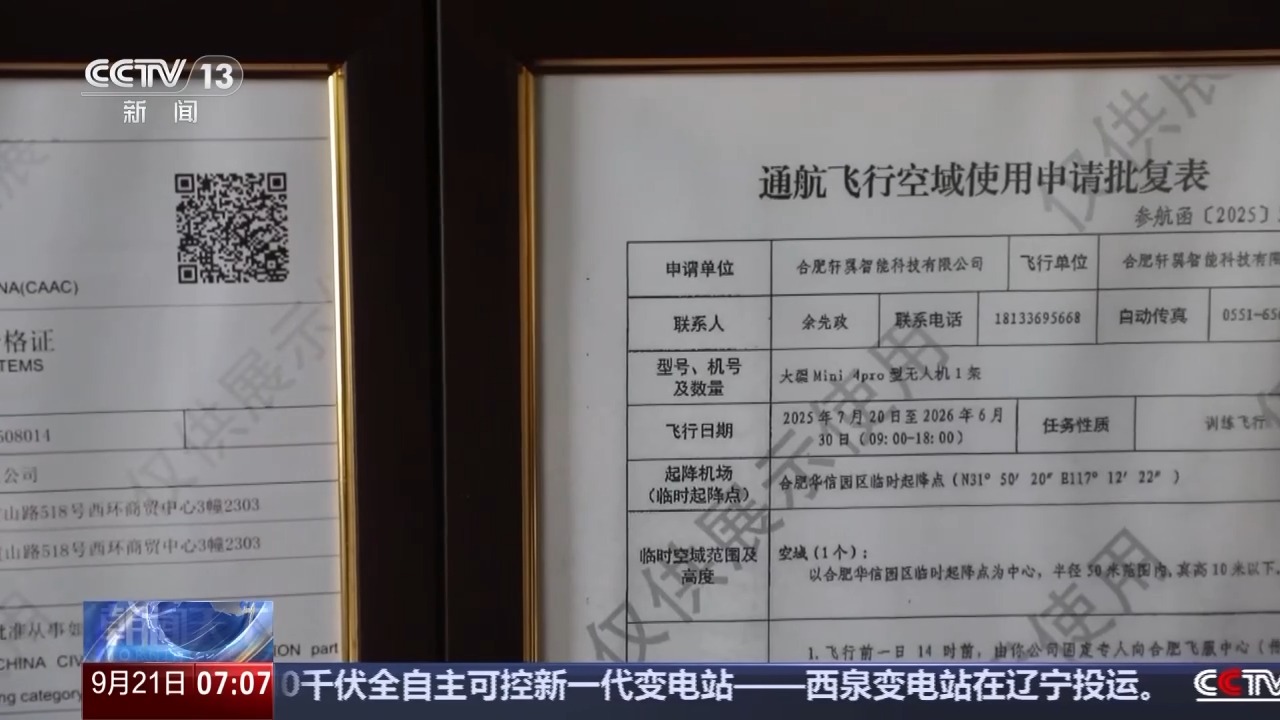 CCTV 13
新闻
NA(CAAC)
格证
TEMS
508014
公司
山路518号西环商贸中心3幢2303
山路518号西环商贸中心3幢2303
批准从事如
CHINA CIV
ION part
ng category
仅供展示使用
通航飞行空域使用申请批复表
参航函〔2025〕
申请单位 合肥轩翼智能科技有限公司 飞行单位 合肥轩翼智能科技有限
联系人 余先政 联系电话 18133695668 自动传真 0551-656
型号、机号及数量 大疆Mini 4pro型无人机1架
飞行日期 2025年7月20日至2026年6月30日(09:00-18:00) 任务性质 训练飞行
起降机场(临时起降点) 合肥华信园区临时起降点(N31° 50′ 20″ E117° 12′ 22″ )
临时空域范围及高度 空域(1个):
以合肥华信园区临时起降点为中心,半径50米范围内,真高10米以下。
1.飞行前一日 14 时前,由你公司固定专人向合肥飞服中心(传
仅供展示使用
仅供展
使用
朝闻天下
9月21日 07:07
0千伏全自主可控新一代变电站——西泉变电站在辽宁投运。
CCTV